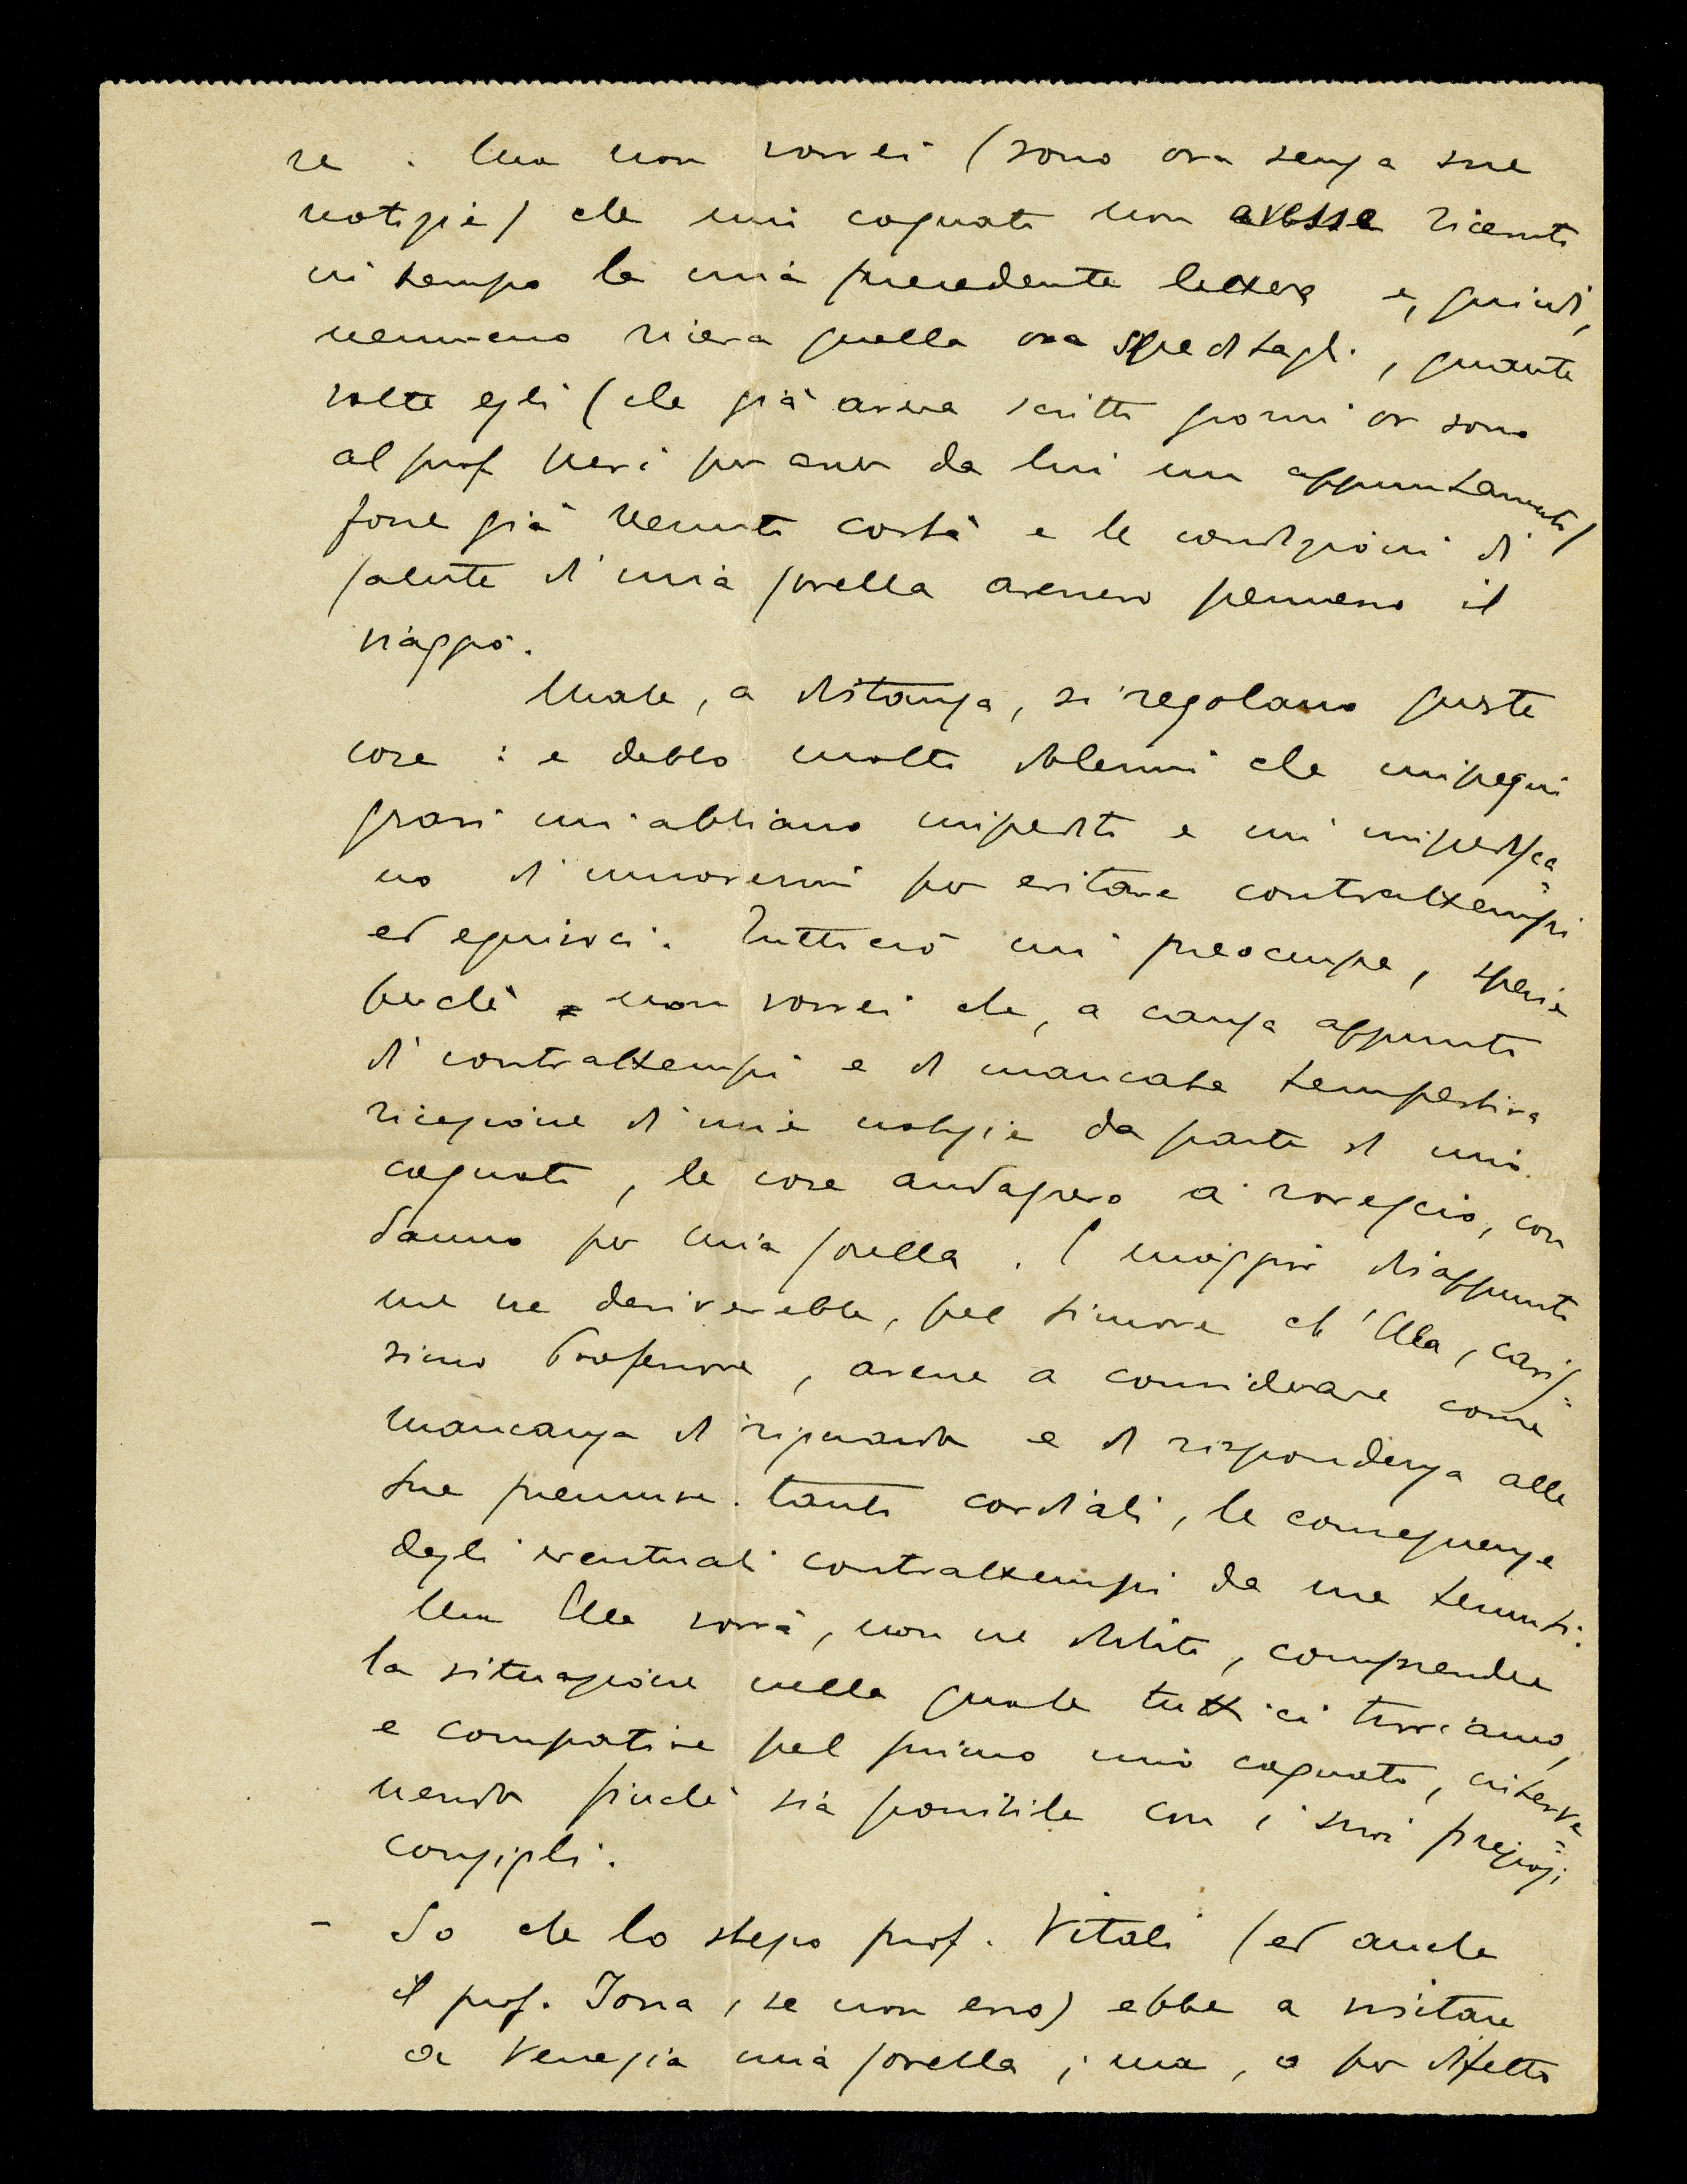 re. Ma non vorrei (sono ora senza sue
notizie) che mio cognato non avesse ricevuto
in tempo la mia precedente lettera e, quindi,
nemmeno riceva quella ora speditagli, quante
volte egli (che già aveva scritto giorni or sono
al prof Neri per aver da lui un appuntamento)
fosse già venuto costà e le condizioni di
salute di mia sorella avessero permesso il
viaggio.
Male, a distanza, si regolano queste
cose: e debbo molto dolermi che impegni
gravi mi abbiano impedito e mi impedisca=
no di muovermi per evitare contrattempi
ed equivoci. Tutto ciò mi preoccupa, specie
perchè non vorrei che, a causa appunto
di contrattempi e di mancata tempestiva
ricezione di mie notizie da parte di mio
cognato, le cose andassero a rovescio, con
danno per mia sorella. E maggior disappunto
me ne deriverebbe, pel timore ch'Ella, caris=
simo Professore, avesse a considerare come
mancanza di riguardo e di rispondenza alle
sue premure tanto cordiali, le conseguenze
degli eventuali contrattempi da me temuti.
Ma Ella vorrà, non ne dubito, comprendere
la situazione nella quale tutti ci troviamo,
e compatire pel primo mio cognato, interve=
nendo finchè sia possibile con i suoi preziosi
consigli.
- So che lo stesso prof. Vitali (ed anche
il prof. Jona, se non erro) ebbe a visitare
a Venezia mia sorella; ma, o per difetto